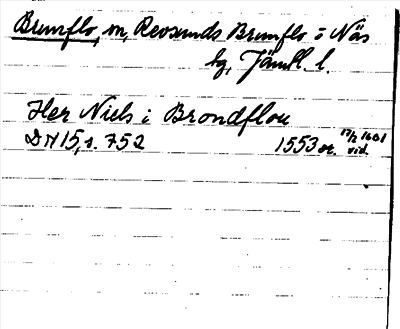 Brunflo, m, Revsunds Brunflo o Näs
tg, Jämtl. l.
Her Niels i Brondflou
DN 15, s. 752 1553 or. 17/2 1601
vid.